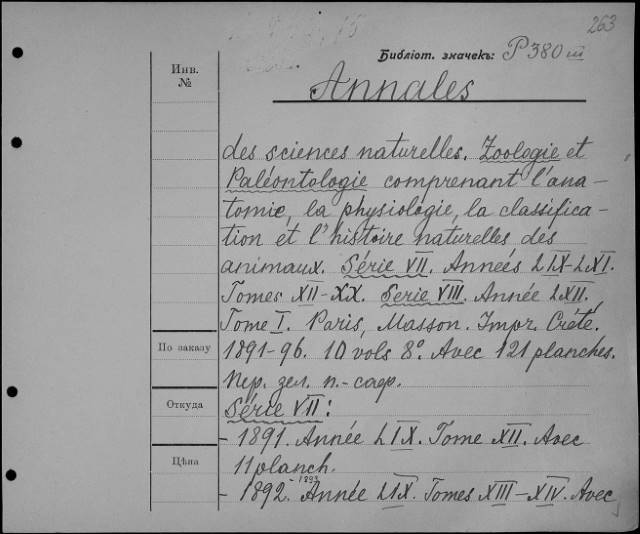 263
Библіот. значекъ: P380 III
Инв.
№
Annales
des sciences naturelles. Zoologie et
Paléontologie comprenant l'ana-
tomie, la physiologie, la classifica-
tion et l'histoire naturelles des
animaux. Série VII. Années LIX-LXI.
Tomes XII-XX. Serie VIII. Année LXII,
Tome I. Paris, Masson. Impr. Crété.
По заказу
1891-96. 10 vols 8°. Avec 121 planches.
Пер. зел. п.-саф.
Откуда
Série VII:
- 1891. Année LIX. Tome XII. Avec
Цѣна
11 planch.
- 1892-1893 Année LIX. Tomes XIII-XIV. Avec